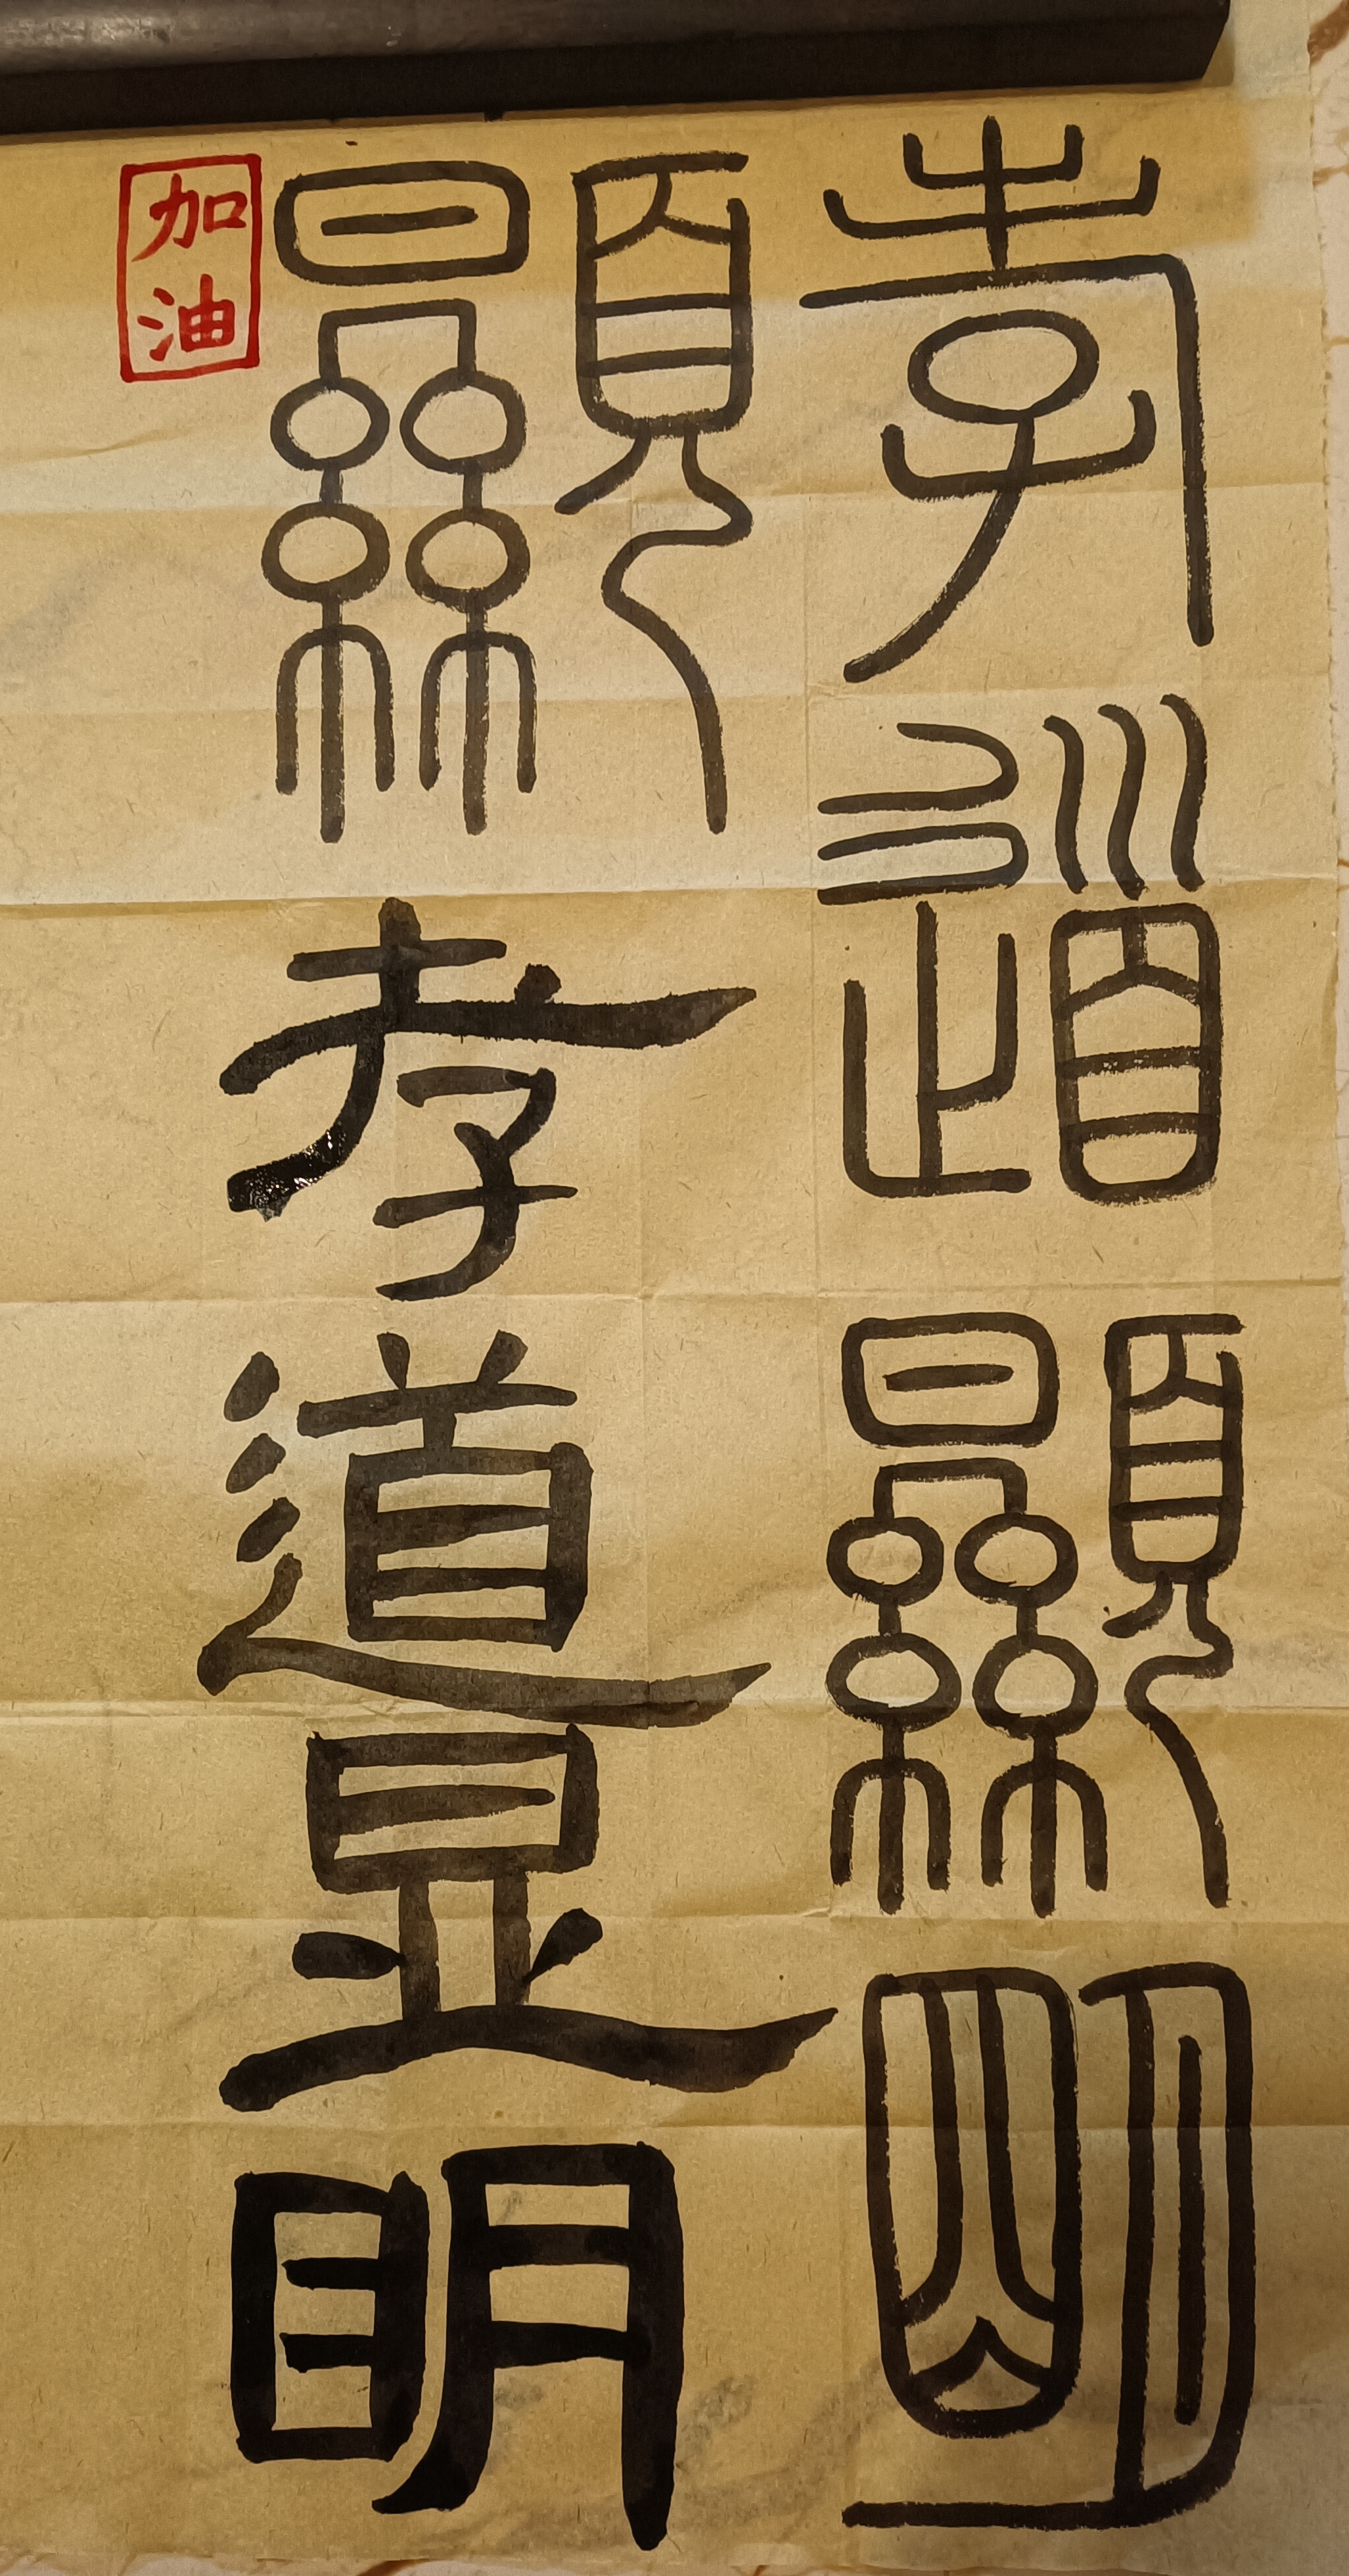 孝道顯明
顯孝道显明
加油